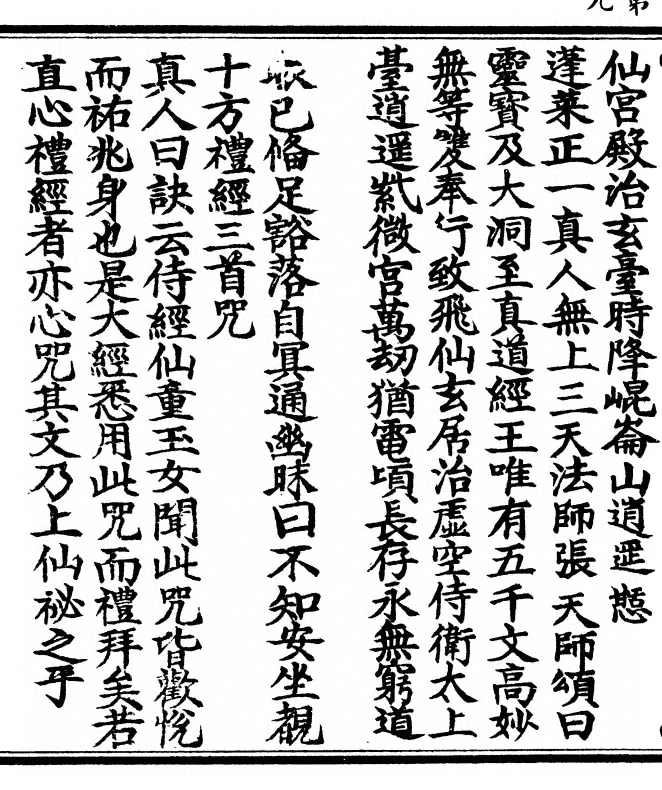 第九
仙宮殿治玄臺時降崐崙山逍遥憩
蓬莱正一真人無上三天法師張天師頌曰
靈寶及大洞至真道經王唯有五千文高妙
無等雙奉行致飛仙玄居治虛空侍衛太上
臺逍遥紫微宮萬劫猶電頃長存永無窮道
已俻足豁落自冥通幽昧曰不知安坐觀
十方禮經三首咒
真人曰訣云侍經仙童玉女聞此咒皆歡悅
而祐兆身也是大經悉用此咒而禮拜矣若
直心禮經者亦心咒其文乃上仙祕之乎